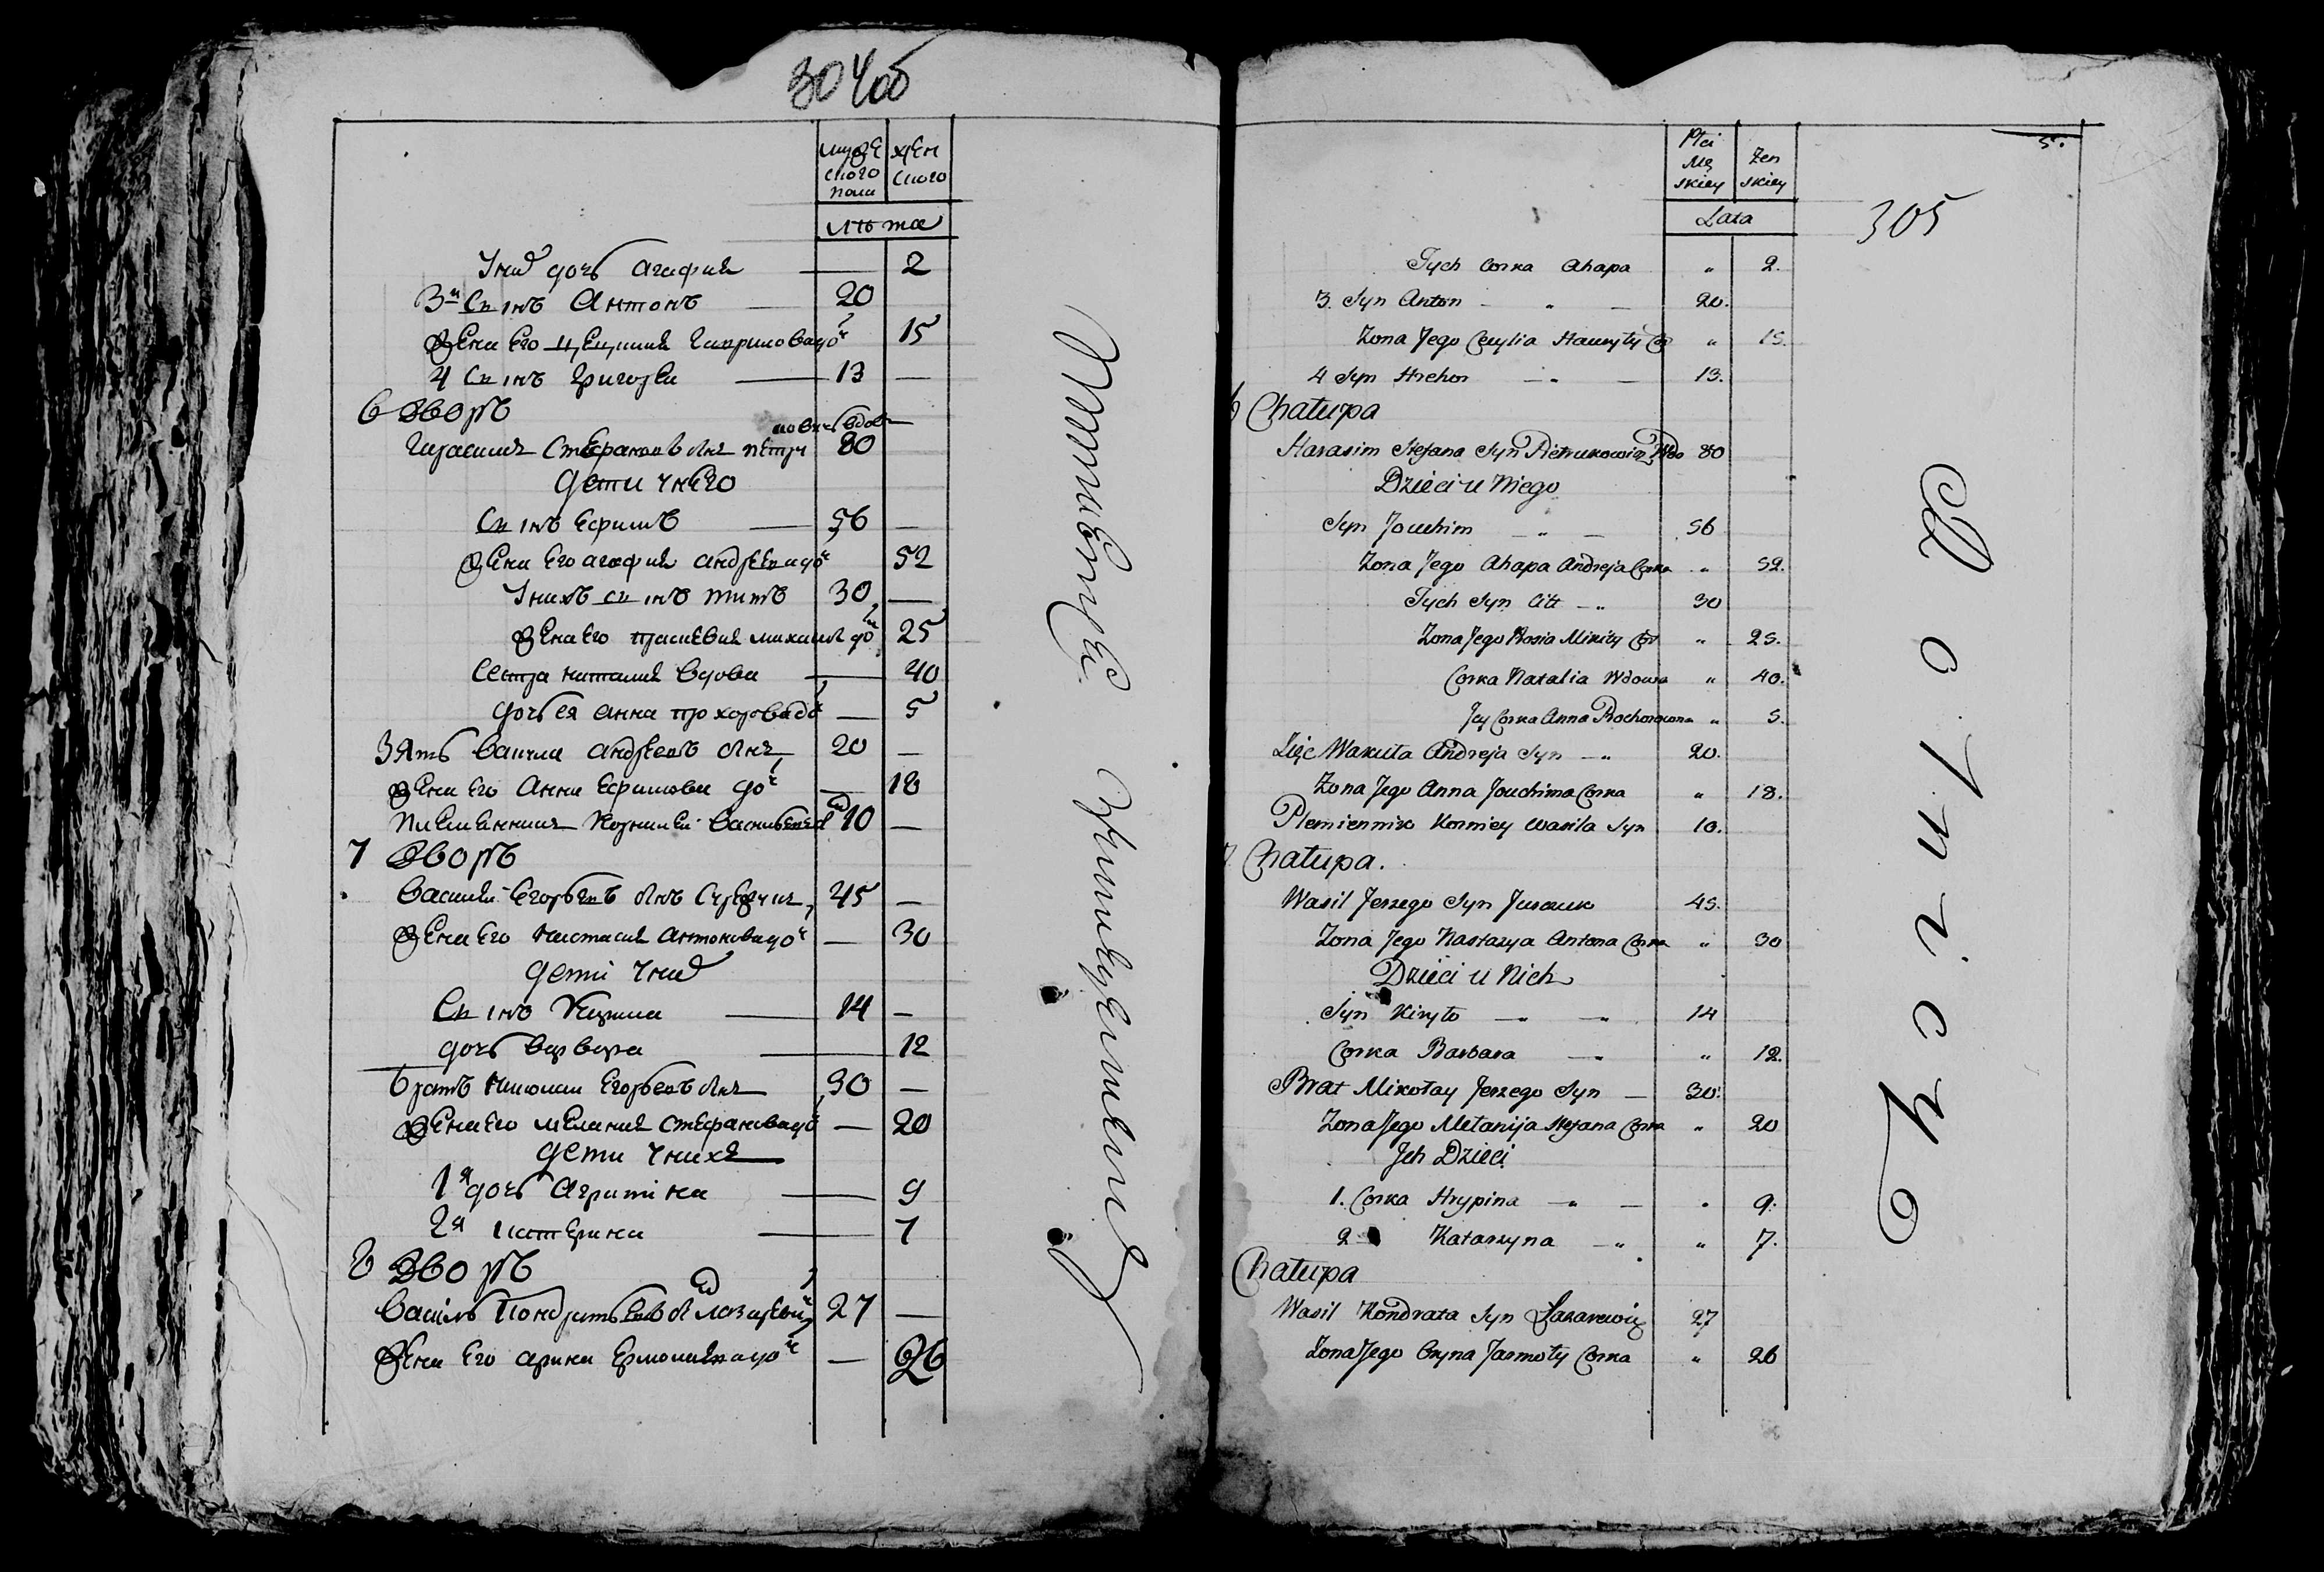 304об
муже
ского
пола
жен
ского
лѣта
у них дочь Агафия — 2
3й Сынъ Антонъ — 20
Жена его Цецилия Гаврилова доч 15
4 Сынъ Григорей — 13 —
6 Дворъ
вдов
Герасим Стефанов сын 80
Дети у него
Сынъ Ефимъ — 56 —
Жена его Агафия Андреева доч 52
У них сынъ Титъ 30 —
Жена его доч 25
Сестра Наталия вдова — 40
дочь ея Анна Прохорова доч — 5
Зять Вакула Андреевъ сын 20 —
Жена его Анна Ефимова доч — 18
Племянник Корнией 10 —
7 Дворъ
Василий Егорьевъ сынъ 45 —
Жена его Настасия Антонова доч — 30
дети у них
Сынъ — 14 —
дочь Варвара — 12
братъ Николай Егорьевъ сын 30 —
Жена его Мелания Стефанова доч — 20
дети у них
1я дочь Агрипина — 9
2я Катерина — 7
8 Дворъ
Василь Кондратьевъ 27 —
Жена его Арина доч — 26
Płci
Mę
skiey
Żen
skiey
Lata
5.
305
Tych Corka Ahapa " 2.
3. Syn Anton - " - 20.
Zona Jego Cecylia Hawryły Cor " 15.
4 Syn Hrehor - " - 13.
6 Chałupa
Harasim Stefana Syn Pietrukowicz Wdo 80
Dzieci u Niego
Syn Jouchim - " - 56
Zona Jego Ahapa Andreja Corka " 52.
Tych Syn Cit - " 30
Zona Jego Mikity Cor " 25.
Corka Natalia Wdowa " 40.
Jey Corka Anna Prochorowna " 5.
Zięc Wakuła Andreja Syn - " 20.
Zona Jego Anna Jouchima Corka " 18.
Plemiennik Korniey Wasila Syn 10.
7. Chałupa.
Wasil Jerzego Syn 45.
Zona Jego Nastazya Antona Corka " 30
Dzieci u Nich
Syn Kiryło - " - " 14
Corka Barbara - " " 12.
Brat Mikołay Jerzego Syn - 30.
Zona Jego Mełanija Stefana Corka " 20
Jch Dzieci
1. Corka Hrypina - " - " 9.
2 Katarzyna - " " 7.
Chałupa
Wasil Kondrata Syn Łazarewicz 27
Zona Jego Oryna Jarmoły Corka " 26